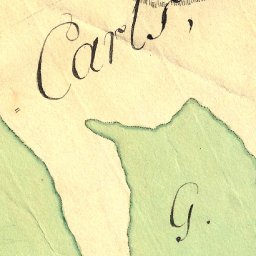 Carls,
G.